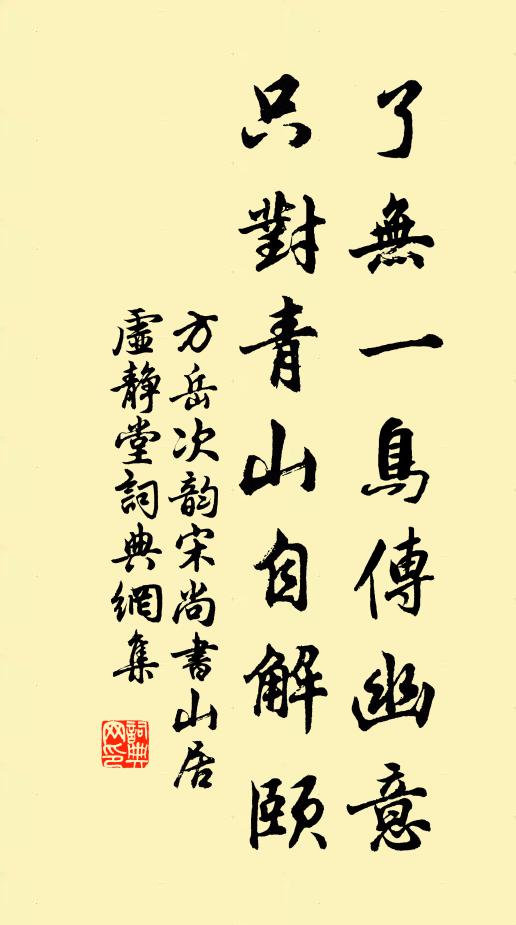 了無一鳥傳幽意
只對青山自解頤
方岳次韵宋尚書山居
虛靜堂詞典網集
詞典網印